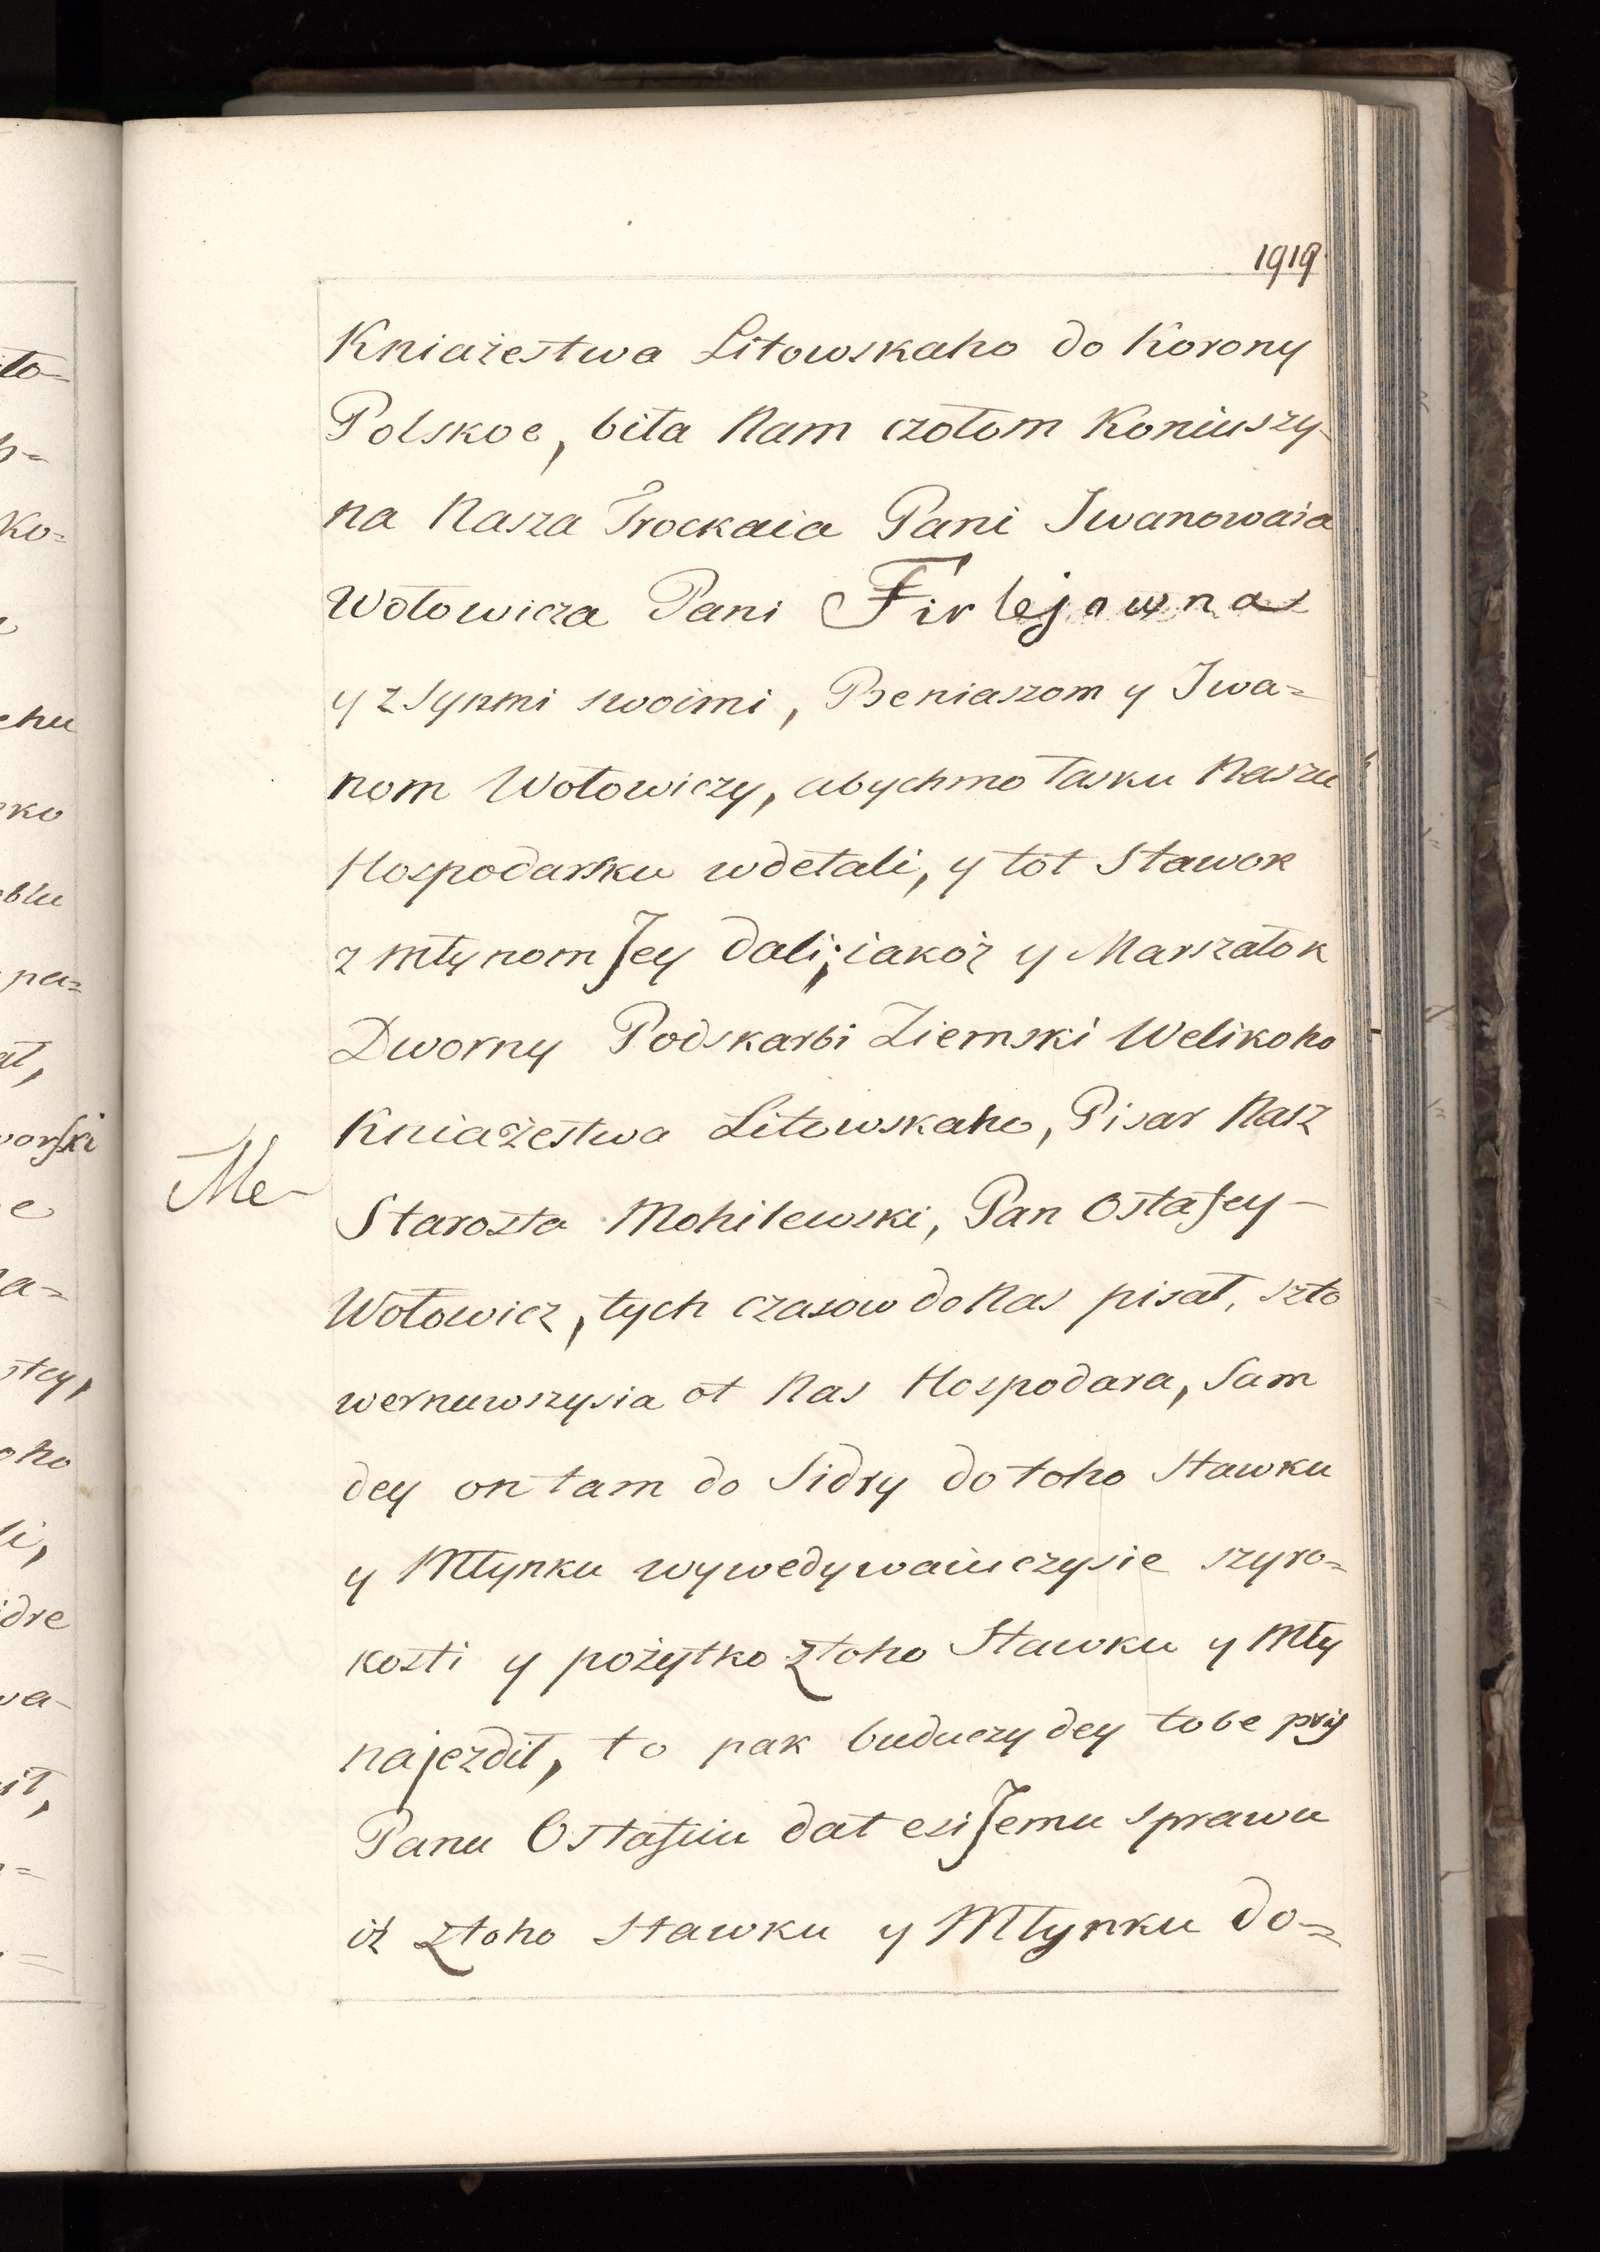 1919
Kniażestwa Litowskaho do Korony
Polskoe, biła Nam czołom Koniuszy-
na Nasza Trockaia Pani Iwanowaia
Wołowicza Pani Firlejowna
y z Synmi swoimi, Beniaszom y Iwa=
nom Wołowiczy, abychmo łasku Naszu
Hospodarsku wdełali, y tot Stawok
z młynom Jey dali; iakoż y Marszałok
Dworny Podskarbi Ziemski Welikoho
Kniażestwa Litowskaho, Pisar Nasz
Me-
Starosta Mohilewski, Pan Ostafey-
Wołowicz, tych czasow do Nas pisał, szto
wernuwszysia ot Nas Hospodara, Sam
dey on tam do Sidry do toho Stawku
y Młynku wywedywaiuczysie szyro=
kosti y pożytko z toho Stawku y Mły
na jezdił, to pak buduczy dey tobe pry
Panu Ostafiiu dał esi Jemu sprawu
iż z toho Stawku y Młynku do=